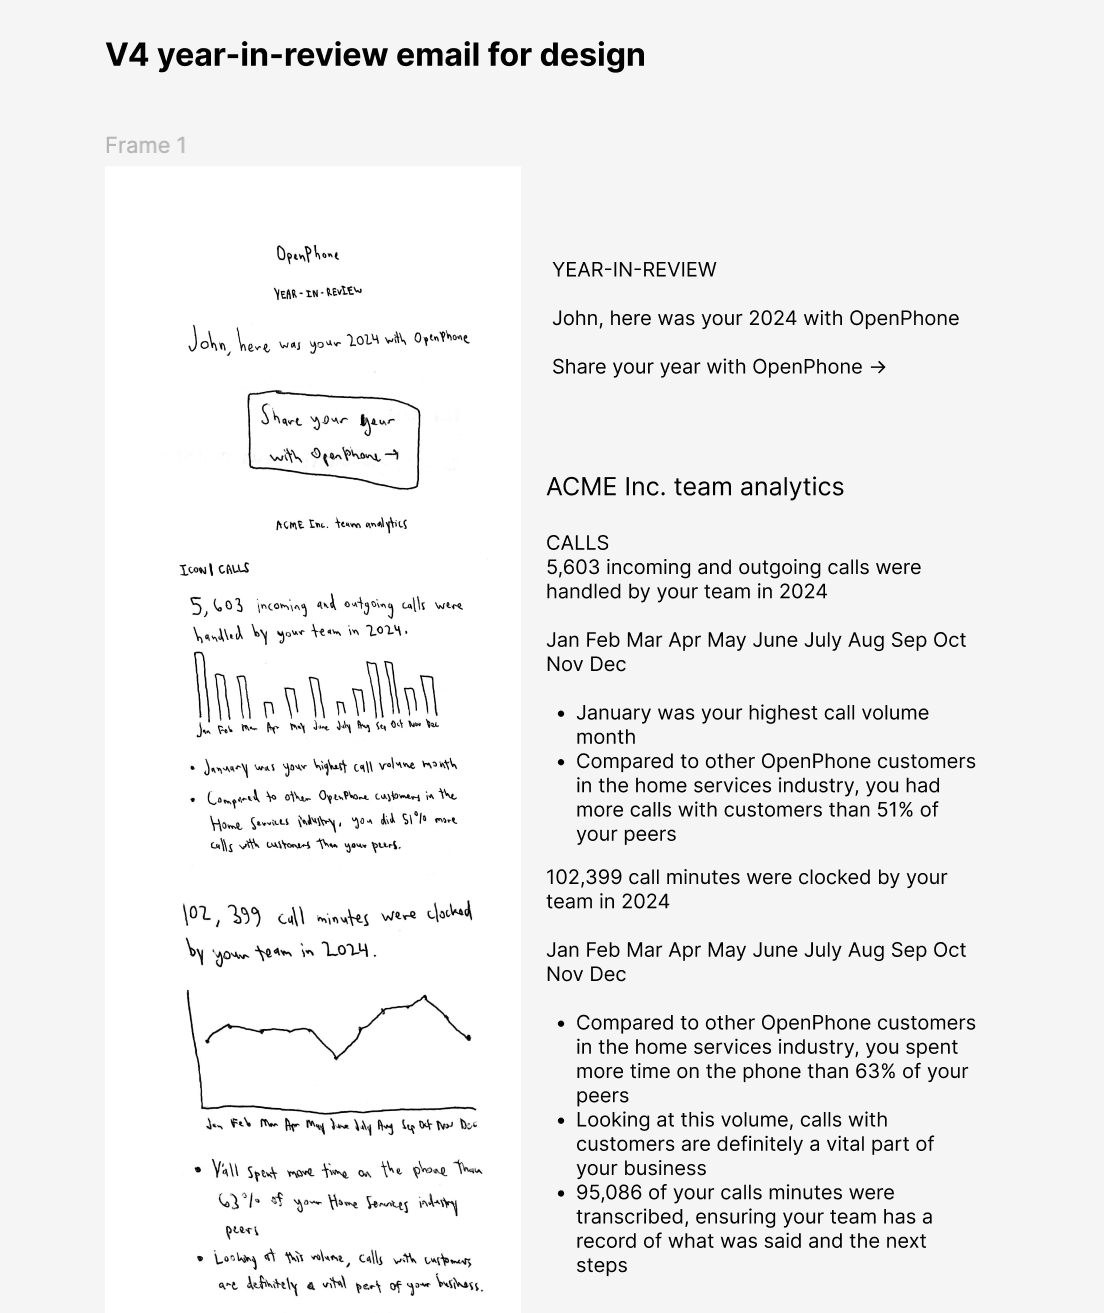 V4 year-in-review email for design
Frame 1
OpenPhone
YEAR-IN-REVIEW
John, here was your 2024 with OpenPhone
Share your year
with OpenPhone →
ACME Inc. team analytics
ICON| CALLS
5,603 incoming and outgoing calls were
handled by your team in 2024.
Jan Feb Mar Apr May June July Aug Sep Oct Nov Dec
• January was your highest call volume month
• Compared to other OpenPhone customers in the
Home Services industry, you did 51% more
calls with customers than your peers.
102,399 call minutes were clocked
by your team in 2024.
Jan Feb Mar Apr May June July Aug Sep Oct Nov Dec
• Y'all spent more time on the phone than
63% of your Home Services industry
peers
• Looking at this volume, calls with customers
are definitely a vital part of your business.
YEAR-IN-REVIEW
John, here was your 2024 with OpenPhone
Share your year with OpenPhone →
ACME Inc. team analytics
CALLS
5,603 incoming and outgoing calls were
handled by your team in 2024
Jan Feb Mar Apr May June July Aug Sep Oct
Nov Dec
• January was your highest call volume
month
• Compared to other OpenPhone customers
in the home services industry, you had
more calls with customers than 51% of
your peers
102,399 call minutes were clocked by your
team in 2024
Jan Feb Mar Apr May June July Aug Sep Oct
Nov Dec
• Compared to other OpenPhone customers
in the home services industry, you spent
more time on the phone than 63% of your
peers
• Looking at this volume, calls with
customers are definitely a vital part of
your business
• 95,086 of your calls minutes were
transcribed, ensuring your team has a
record of what was said and the next
steps